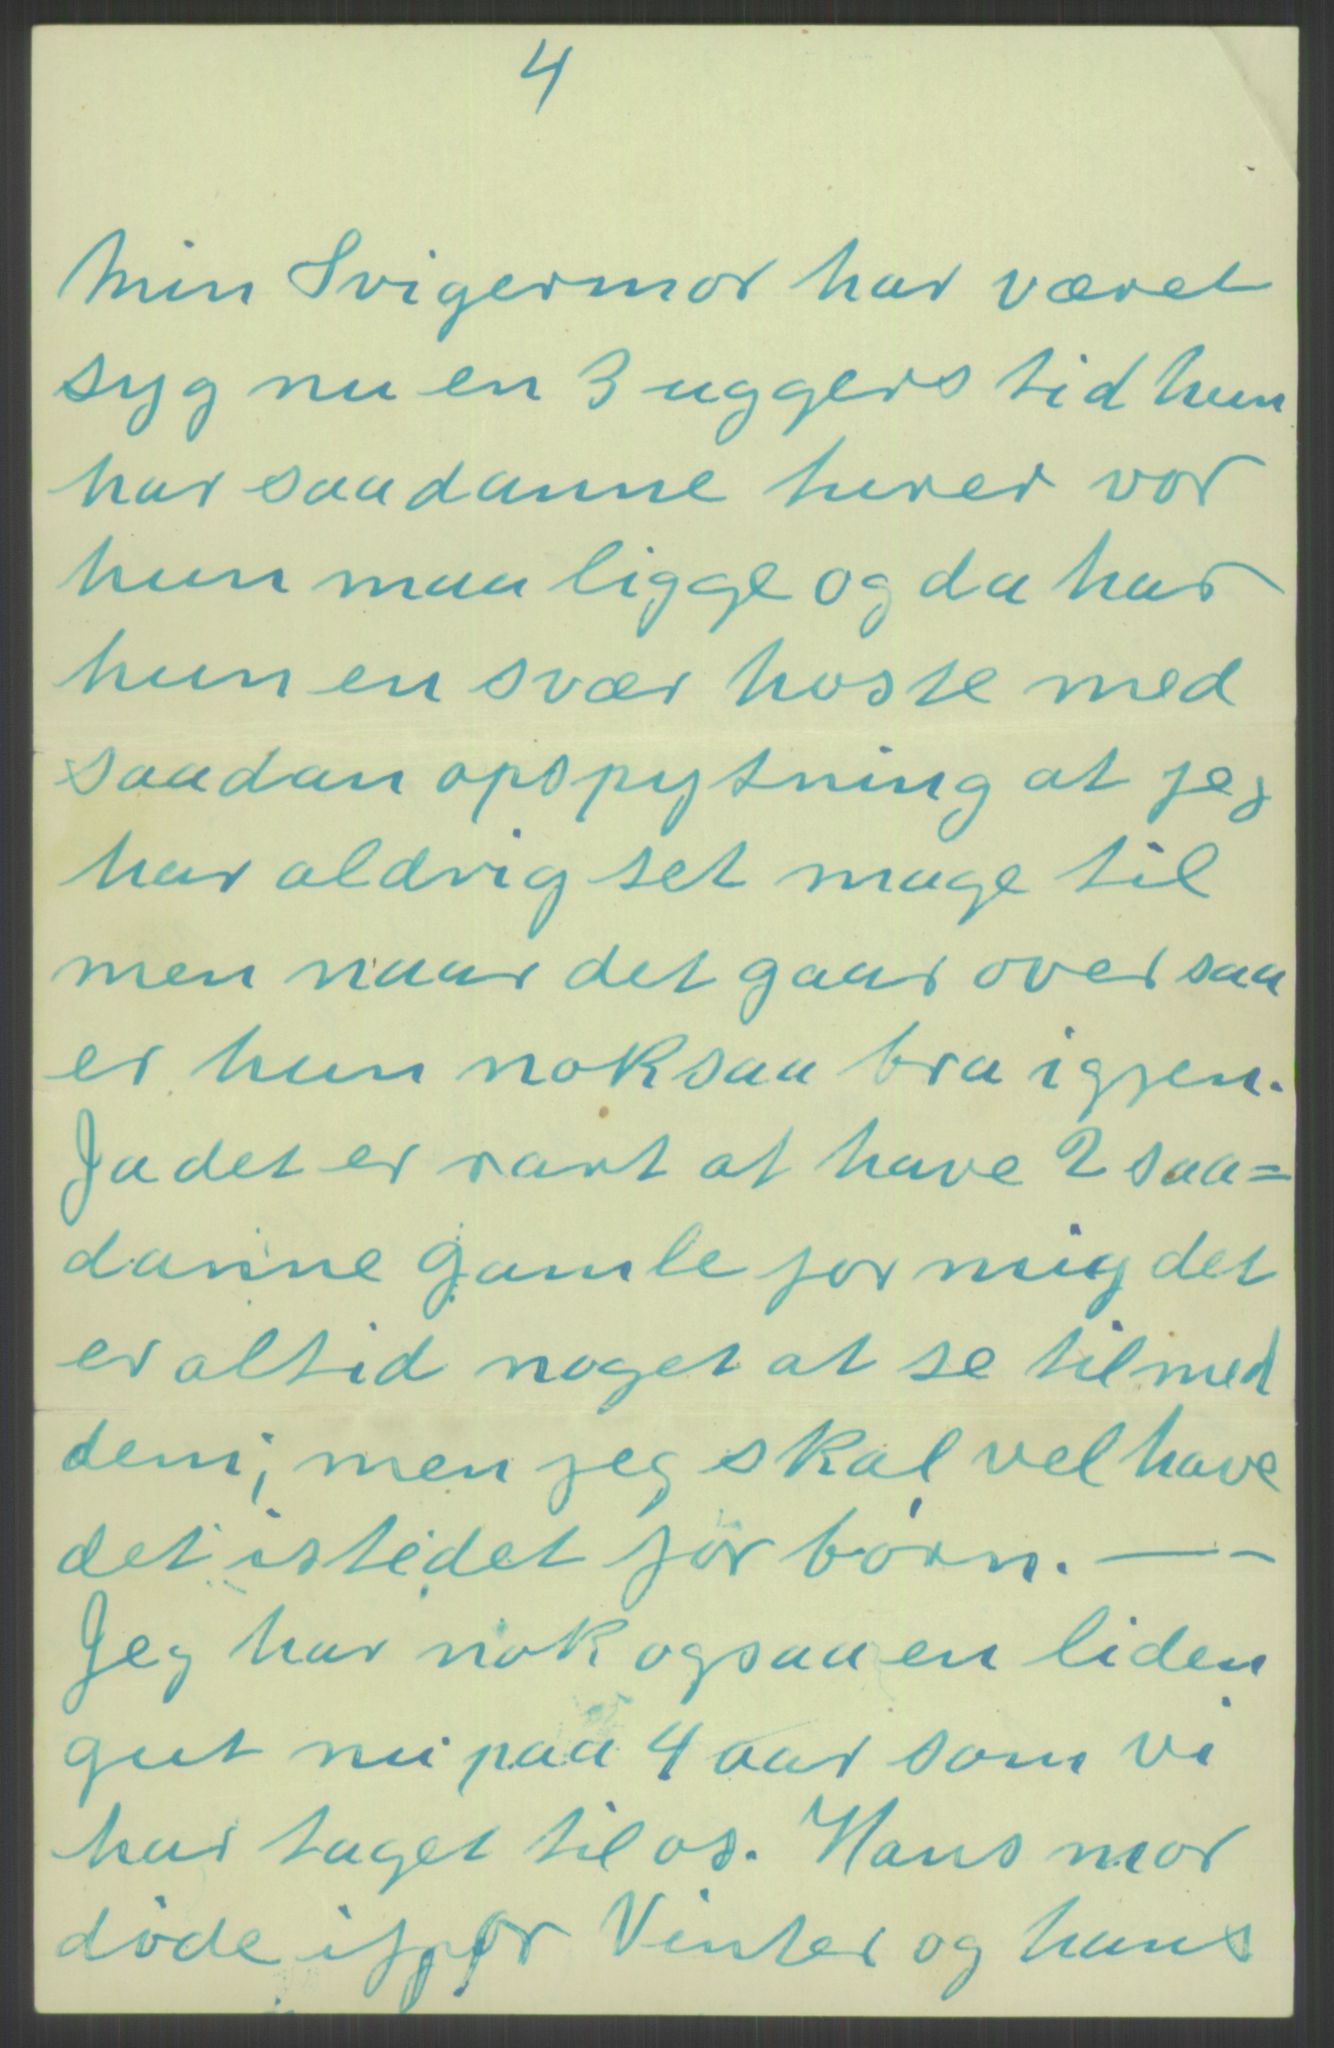 4
Min Svigermor har været
syg nu en 3 uggers tid hun
har saadanne hurer vor
hun maa ligge og da har
hun en svær hoste med
saadan opspytning at jeg
har aldrig set mage til
men naar det gaar over saa
er hun noksaa bra igjen.
Ja det er rart at have 2 saa=
danne gamle for mig det
er altid noget at se til med
dem; men jeg skal vel have
det istedet for børn. —–
Jeg har nok ogsaa en liden
gut nu paa 4 aar som vi
har taget til os. Hans mor
døde ifjor Vinter og hans